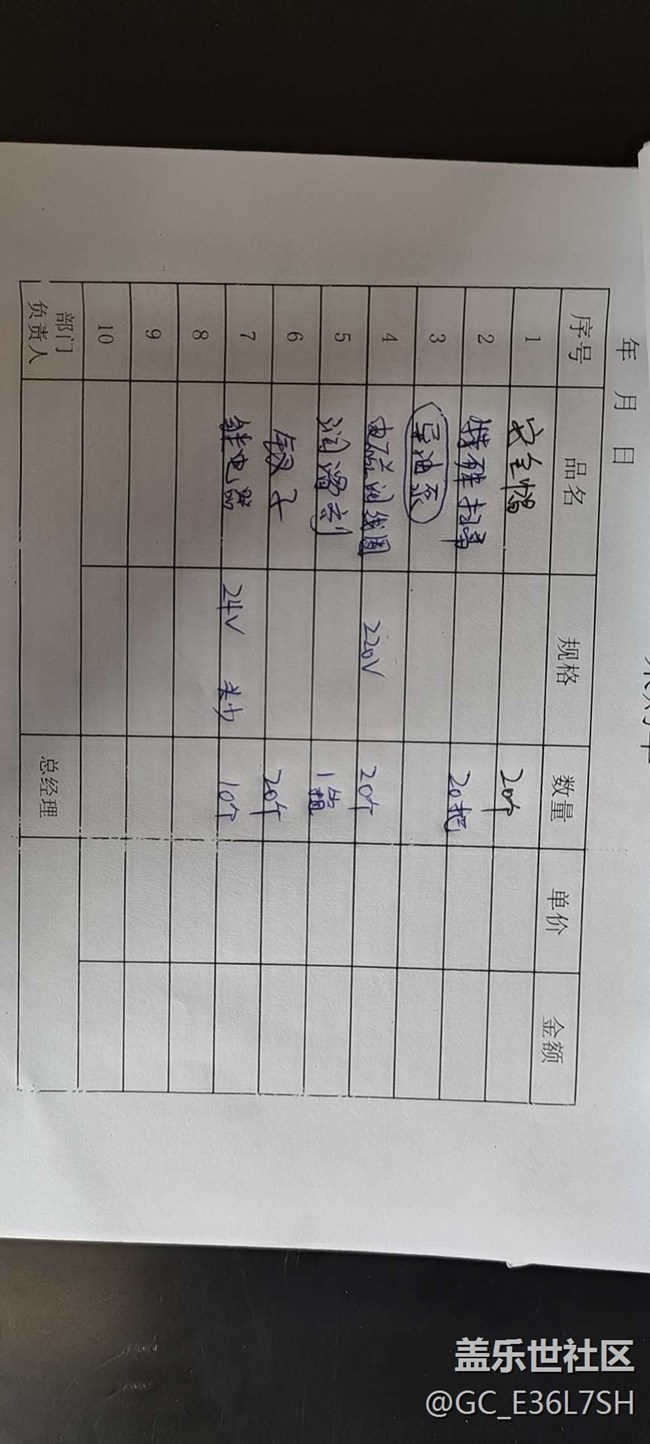 年 月 日
序号 品名 规格 数量 单价 金额
1 安全帽 20个
2 20把
3 导油泵
4 电磁阀线圈 220V 20个
5 润滑剂 1箱
6 钗子 20个
7 继电器 24V 10个
8
9
10
部门负责人 总经理
盖乐世社区
@GC_E36L7SH